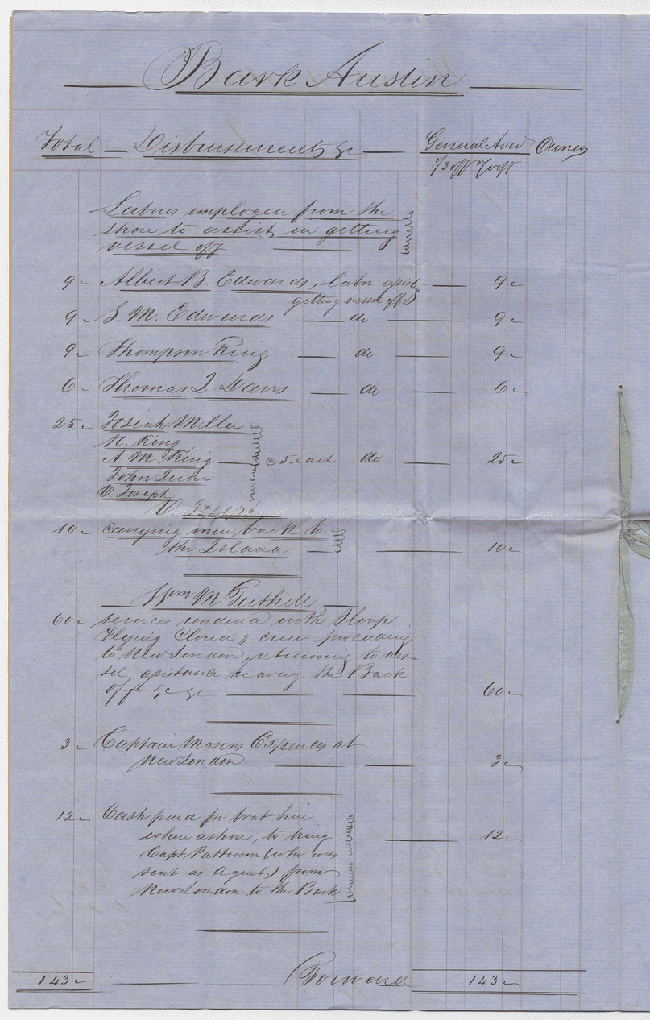 Bark Austin
Total Disbursements &c General Aver Owners
Labor employed from the
shore to assist in getting
vessel off
9 - Albert B. Edwards, labor
getting vessel off 9 -
9 - S M. Edwards do 9 -
9 - Thompson King do 9 -
6 - Thomas J. Davis do 6 -
25 - Josiah Miller
N. King
A. M. King $5 each do 25 -
John
V. Joseph
10 - carrying men back to
the Island 10 -
Tuthill
60 - services rendered with Sloop
Flying Cloud & crew proceeding
to New London, returning to ves-
sel, assistance heaving the Bark
off &c &c 60 -
3 - Captain Expenses at
New London 3 -
12 - Cash paid for boat hire
when ashore, to bring
Capt. Patterson who was
sent as Agent from
New London to the Bark 12 -
143 - Forward 143 -